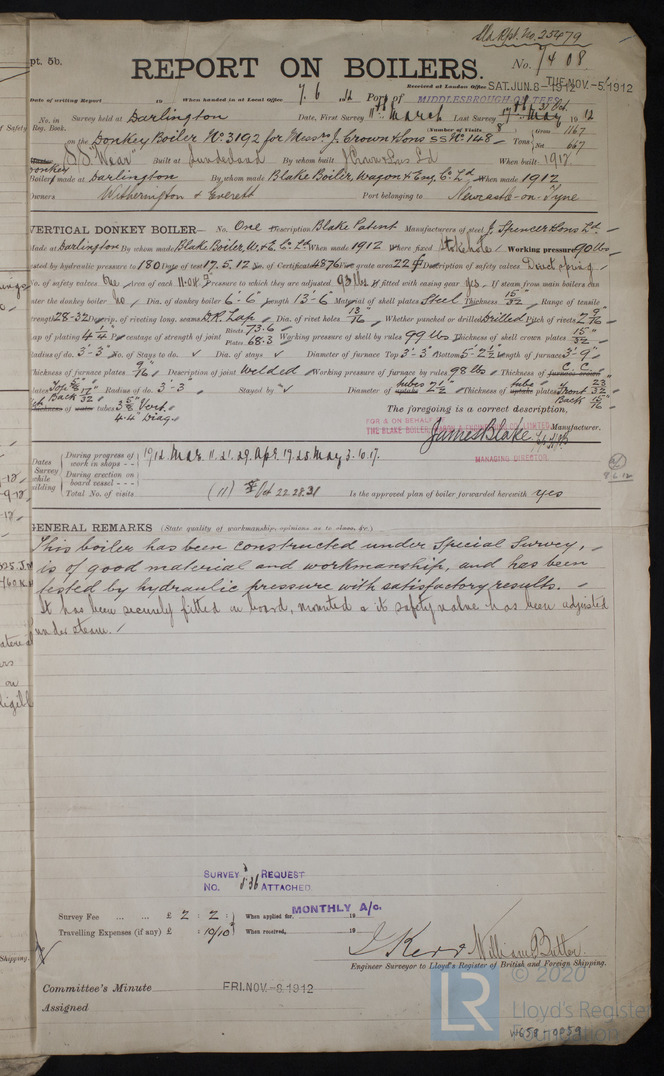 Sld Rpt. No. 25479
pt. 5b.
REPORT ON BOILERS.
No. 7408
Received at London Office SAT. JUN. 8 - 1912 TUE. NOV. -5 1912
Date of writing Report 19 When handed in at Local Office 7. 6 1912 Port of MIDDLESBROUGH-ON-TEES
No. in Reg. Book. Survey held at Darlington Date, First Survey 11th March Last Survey 1912
on the Donkey Boiler No. 3192 for Messrs J. Crown & Sons SS No. 148 (Number of Visits 8) Tons Gross 1167 Net 667
S.S. "Wear" Built at Sunderland By whom built J Crown & Sons Ld When built 1912
Donkey Boilers made at Darlington By whom made Blake Boiler, Wagon & Eng. Co. Ld When made 1912
Owners Witherington & Everett Port belonging to Newcastle-on-Tyne
VERTICAL DONKEY BOILER— No. One Description Blake Patent Manufacturers of steel J. Spencer & Sons Ld.
Made at Darlington By whom made Blake Boiler, W. & E. Co. Ld When made 1912 Where fixed Stokehole Working pressure 90 lbs
tested by hydraulic pressure to 180 Date of test 17.5.12 No. of Certificate 4876 Fire grate area 22 Description of safety valves Direct spring
No. of safety valves One Area of each 11.04 Pressure to which they are adjusted 93 lbs If fitted with easing gear yes If steam from main boilers can
enter the donkey boiler no Dia. of donkey boiler 6'-6" Length 13'-6" Material of shell plates Steel Thickness 15/32" Range of tensile
strength 28-32 Descrip. of riveting long. seams D.R. Lap Dia. of rivet holes 13/16" Whether punched or drilled Drilled Pitch of rivets 2 9/16"
Lap of plating 4 1/4" Percentage of strength of joint Rivets 73.6 Plates 68.3 Working pressure of shell by rules 99 lbs Thickness of shell crown plates 15/32"
Radius of do. 3'-3" No. of Stays to do. ✓ Dia. of stays ✓ Diameter of furnace Top 3'-3" Bottom 5'-2 1/2" Length of furnace 3'-9"
Thickness of furnace plates 9/16" Description of joint welded Working pressure of furnace by rules 98 lbs Thickness of furnace crown C.C.
plates Top 17/32" Back Radius of do. 3'-3" Stayed by ✓ Diameter of uptake tubes 2 1/2" Thickness of uptake tube plates Front 23/32" Back 15/16"
Thickness of water tubes 3 5/8" Vert. 4.4" Diag.
The foregoing is a correct description,
FOR & ON BEHALF OF
THE BLAKE BOILER, WAGON & ENGINEERING CO. LIMITED
James Blake Manufacturer.
MANAGING DIRECTOR
Dates of Survey while building
During progress of work in shops - - 1912 Mar. 11. 21. 29. Apr. 17. 25. May 3. 10. 17.
During erection on board vessel - - -
Total No. of visits (11) Oct 22. 28. 31
Is the approved plan of boiler forwarded herewith yes
GENERAL REMARKS (State quality of workmanship, opinions as to class, &c.)
This boiler has been constructed under Special Survey,
is of good material and workmanship, and has been
tested by hydraulic pressure with satisfactory results.
It has been securely fitted on board, mounted & its safety valve has been adjusted
under steam.
SURVEY REQUEST
NO. 836 ATTACHED.
Survey Fee ... ... £ 2 : 2 : When applied for, MONTHLY A/c. 19
Travelling Expenses (if any) £ : 10/10 When received, 19
William Butler
Engineer Surveyor to Lloyd's Register of British and Foreign Shipping.
Committee's Minute FRI. NOV. -8 1912
Assigned
LR
© 2020
Lloyd's Register
Foundation
W658-0059